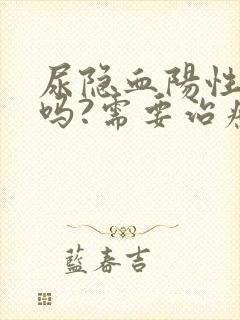 尿隐血陽性
吗?需要治
藍春吉